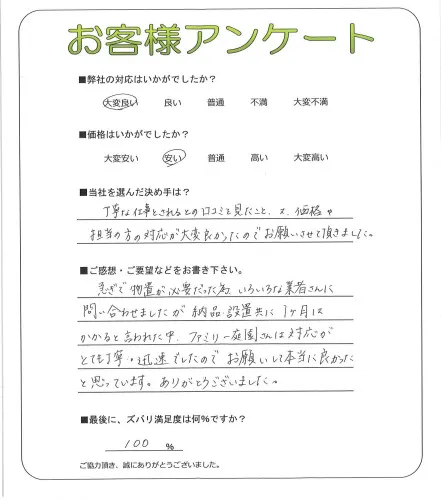 お客様アンケート
■弊社の対応はいかがでしたか?
大変良い 良い 普通 不満 大変不満
■価格はいかがでしたか?
大変安い 安い 普通 高い 大変高い
■当社を選んだ決め手は?
丁寧な仕事をされるとの口コミを見たこと、又、価格や
担当の方の対応が大変良かったのでお願いさせて頂きました。
■ご感想・ご要望などをお書き下さい。
急ぎで物置が必要だった為、いろいろな業者さんに
問い合わせましたが納品・設置共に1ヶ月は
かかると言われた中、ファミリー庭園さんは対応が
とても丁寧・迅速でしたのでお願いして本当に良かった
と思っています。ありがとうございました。
■最後に、ズバリ満足度は何%ですか?
100 %
ご協力頂き、誠にありがとうございました。